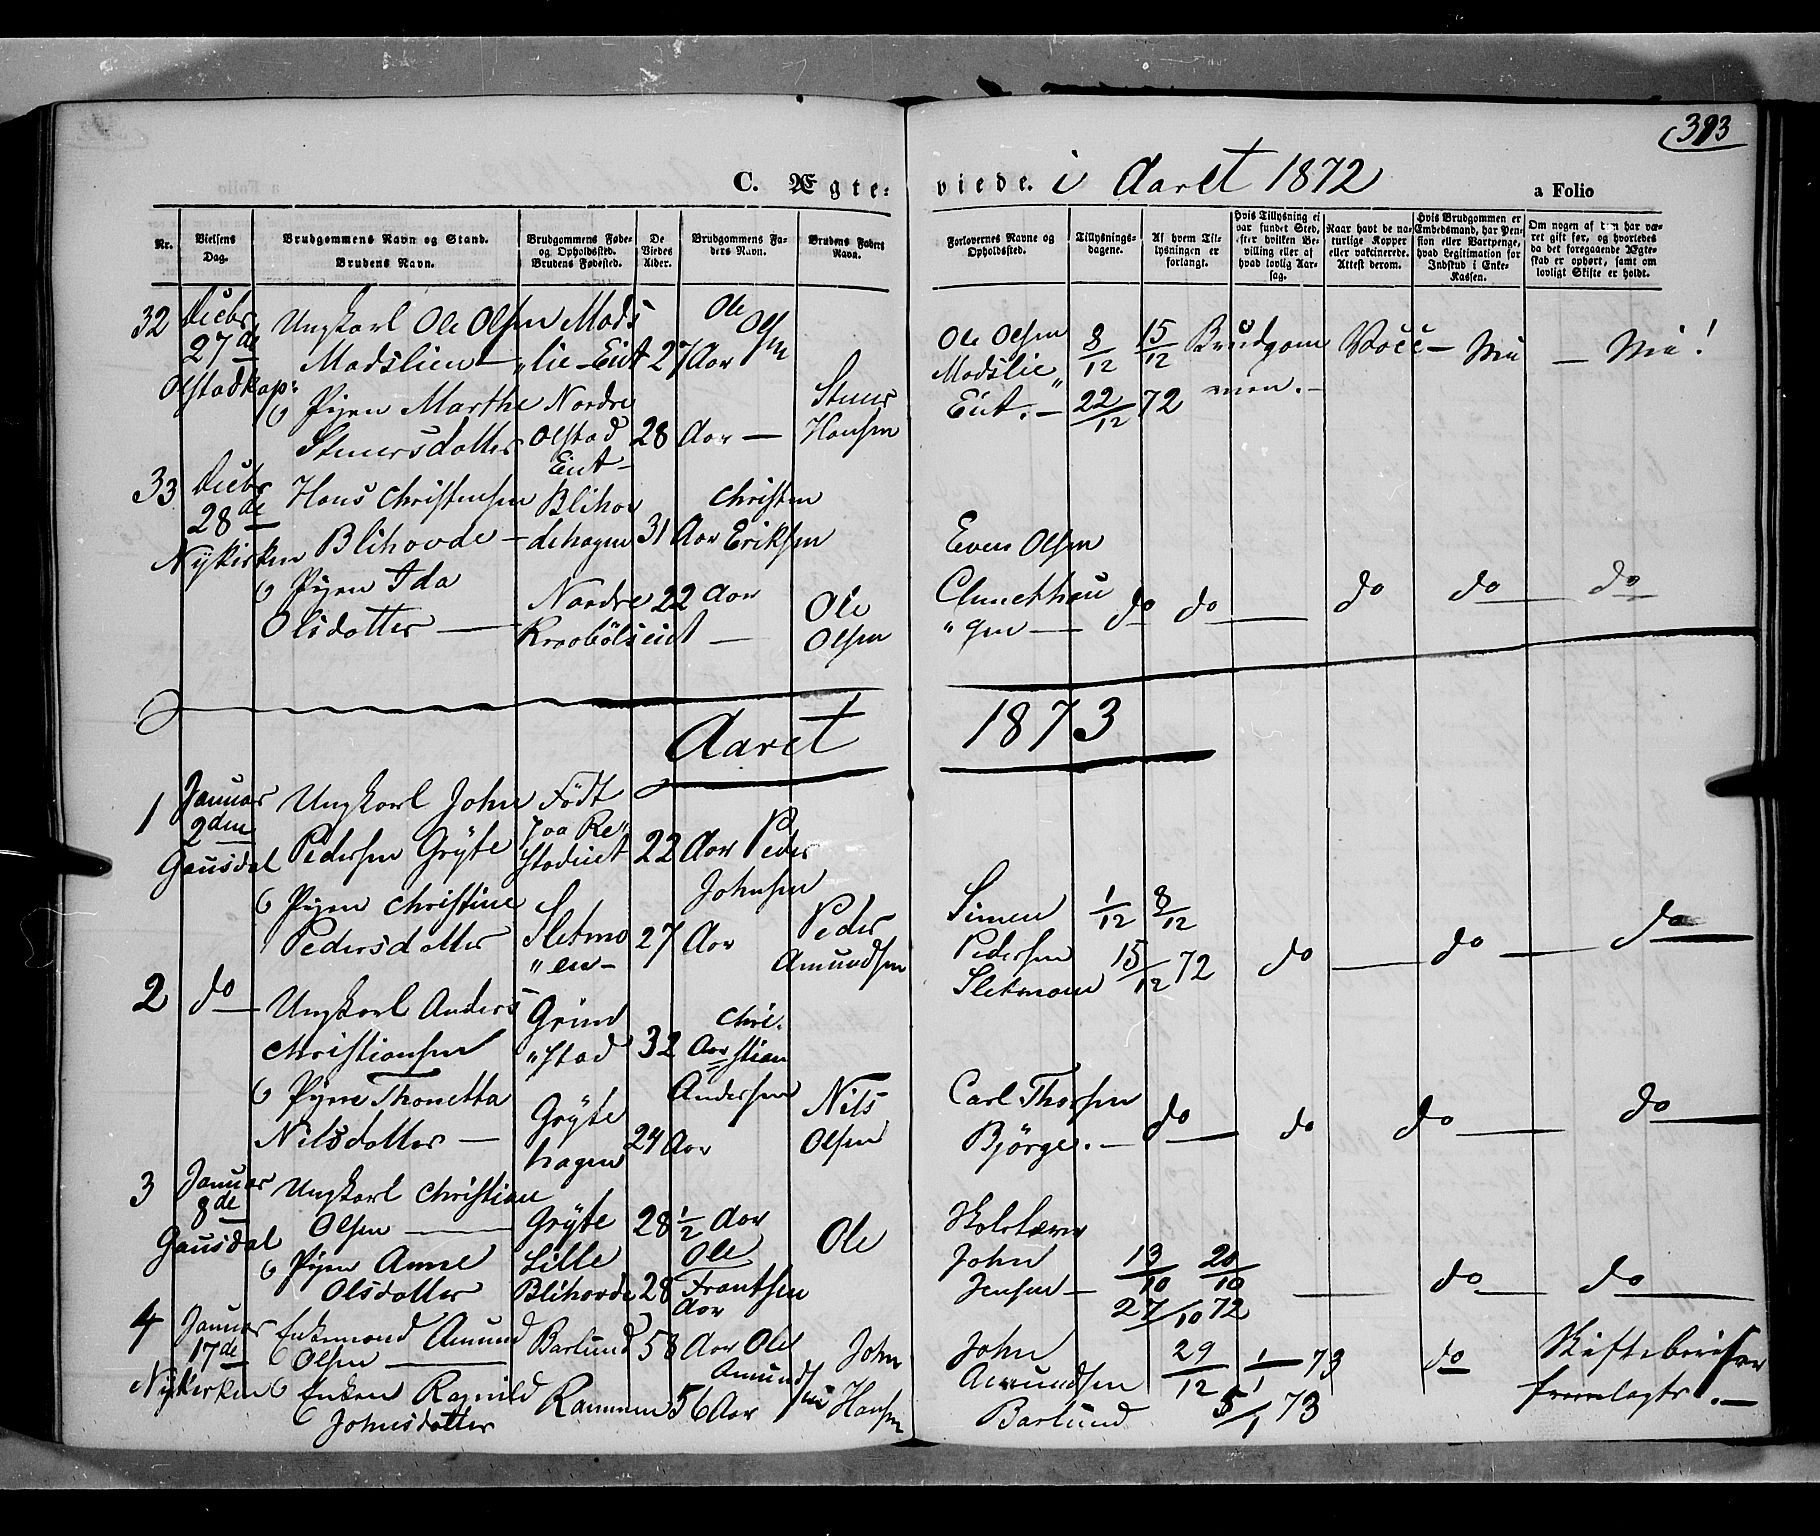 393
C. Ægteviede. i Aaret 1872 a Folio
Nr.
Vielsens Dag.
Brudgommens Navn og Stand.
Brudens Navn.
Brudgommens Føde- og Opholdssted.
Brudens Fødested.
De Viedes Alder.
Brudgommens Faders Navn.
Brudens Faders Navn.
Forlovernes Navne og Opholdssted.
Tillysningsdagene.
Af hvem Tillysningen er forlangt.
Hvis Tillysning ei var fundet Sted, efter hvilken Bevilling eller af hvad lovlig Aarsag.
Naar havt de naturlige Kopper eller vaktinerede. Attest derom.
Hvis Brudgommen er Embedsmand, har Pension eller Vartpenge, hvad Legitimation for Indskud i Enke-Kassen.
Om nogen af dem har været gift før, og hvorledes da det foregaaende Ægteskab er ophørt, samt om lovligt Skifte er holdt.
32 Decbr Ungkarl Ole Olsen Mads Ole
27de Madslien - "lie - Eiet 27 Aar Olsen Ole Olsen 8/12 15/12 Brudgom Vacc - Nei - Nei!
Olstadkap: Madslie men. -
Pigen Marthe Nordre Steners Eiet. - 22/12 72
Stenersdatter Olstad 28 Aar - Hansen
Eiet -
33 Decbr Hans Christensen Blihov Christen
28de Blihovde - dehagen 31 Aar Eriksen Even Olsen
Nykirken
Pigen Ida Nordre 22 Aar Ole do do do do do
Olsdatter - Kraabölseiet - Olsen "gen -
Aaret 1873
1 Januar Ungkarl John Född
2den Pedersen Gryte paa Re" 22 Aar Peder
Gausdal stadeiet Johnsen
Pigen Christine Sletmo Peder Simen 1/12 8/12
Pedersdatter "en - 27 Aar Amundsen Pedersen 15/12 72 do do do
Sletmoen
2 do Ungkarl Anders Grim Chri-
Christiansen "stad 32 Aar stian
Pigen Thonetta Gryte Andersen Nils Carl Thorsen
Nilsdatter - hagen 24 Aar Olsen Björge. - do do do do
3 Januar Ungkarl Christian
8de Olsen - Gryte 28 1/2 Aar Ole
Gausdal Skolelærer
Pigen Anne Lille Ole John 13/10 20/10
Olsdatter Blihovde 28 Frantsen Jensen - 27/10 72 do do
Aar
4 Januar Enkemand Amund Barlund 58 Aar Ole John John 29/12 1/1 73 do Skiftebeviser
17de Olsen Amundsen Amundsen fremlagte. -
Nykirken Enken Ragnild 56 Aar Hansen Barlund 5/1 73
Johnsdatter